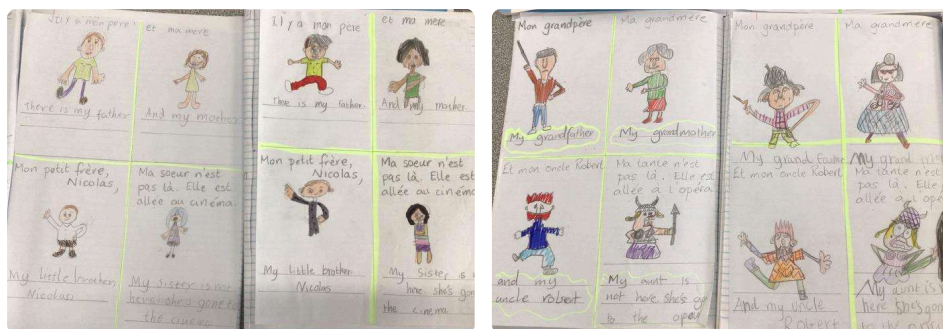 Il y a mon père
There is my father
et ma mère
And my mother
Mon petit frère,
Nicolas,
My little brother
Nicolas
Ma soeur n'est
pas là. Elle est
allée au cinéma.
My sister is not
here she's gone to
the cinema
Il y a mon père
There is my father
et ma mère
And my mother
Mon petit frère,
Nicolas,
My little brother
Nicolas
Ma soeur n'est
pas là. Elle est
allée au cinéma.
My sister is
here she's gon
the cinema
Mon grandpère
My grandfather
Ma grandmère
My grandmother
Et mon oncle Robert
and my
uncle robert
Ma tante n'est
pas là. Elle es
allée à l'opéra.
My aunt is
not here. She's go
to the oper
Mon grandpère
My grand
Ma grandmère
My grand
Et mon oncle Robert
And my uncle
Robert
Ma tante n'est
pas là. Elle
allée à l'opé
My aunt is
here she's go